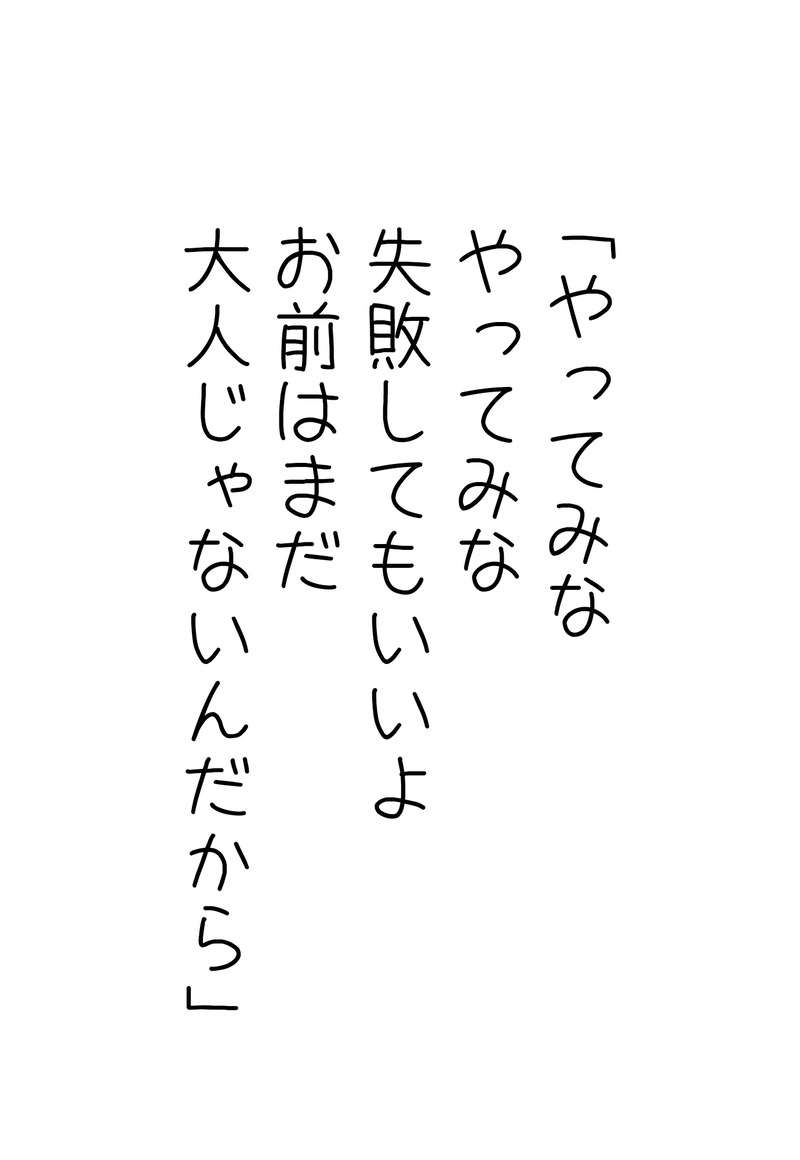 「やってみな
やってみな
失敗してもいいよ
お前はまだ
大人じゃないんだから」